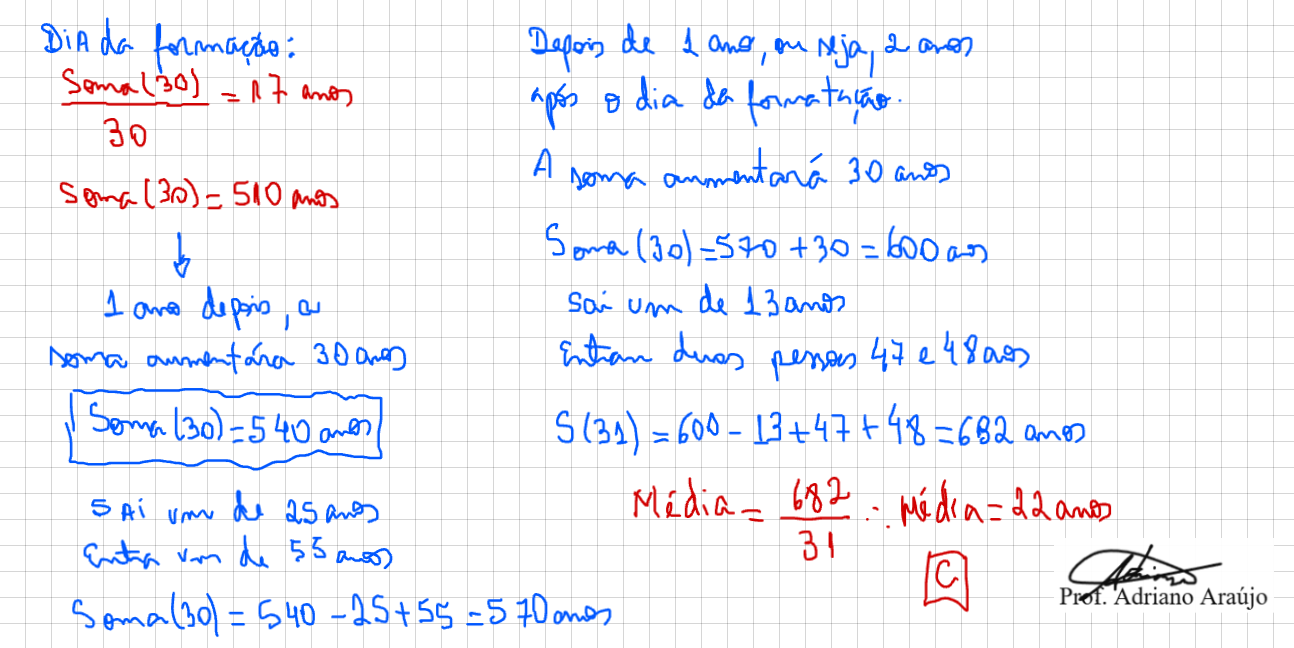 DiA da formação:
Soma(30)
30
= 17 anos
Soma(30) = 510 anos
1 ano depois, a
soma aumentára 30 anos
Soma(30) = 540 anos
SAi um de 25 anos
Entra um de 55 anos
Soma(30) = 540 - 25 + 55 = 570 anos
Depois de 1 ano, ou seja, 2 anos
após o dia da formatução.
A soma aumentará 30 anos
Soma(30) = 570 + 30 = 600 anos
Sai um de 13 anos
Entram duas pessoas 47 e 48 anos
S(31) = 600 - 13 + 47 + 48 = 682 anos
Média = 682/31 ∴ Média = 22 anos
C
Prof. Adriano Araújo